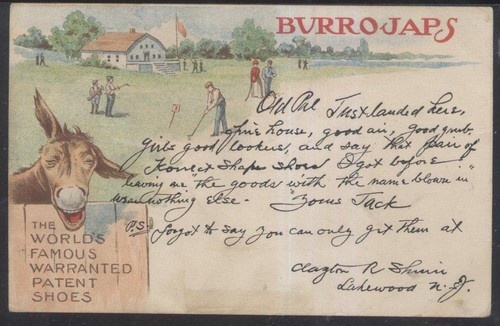 BURRO·JAPS
Old Pal Just landed here,
fine house, good air, good grub,
Girls good lookers, and say this pair of
Korrect Shape shoes I got before
leaving are the goods with the name blown in
wear nothing else. Yours Jack
P.S.
forgot to say you can only get them at
Clayton R
Lakewood N.J.
THE
WORLD'S
FAMOUS
WARRANTED
PATENT
SHOES